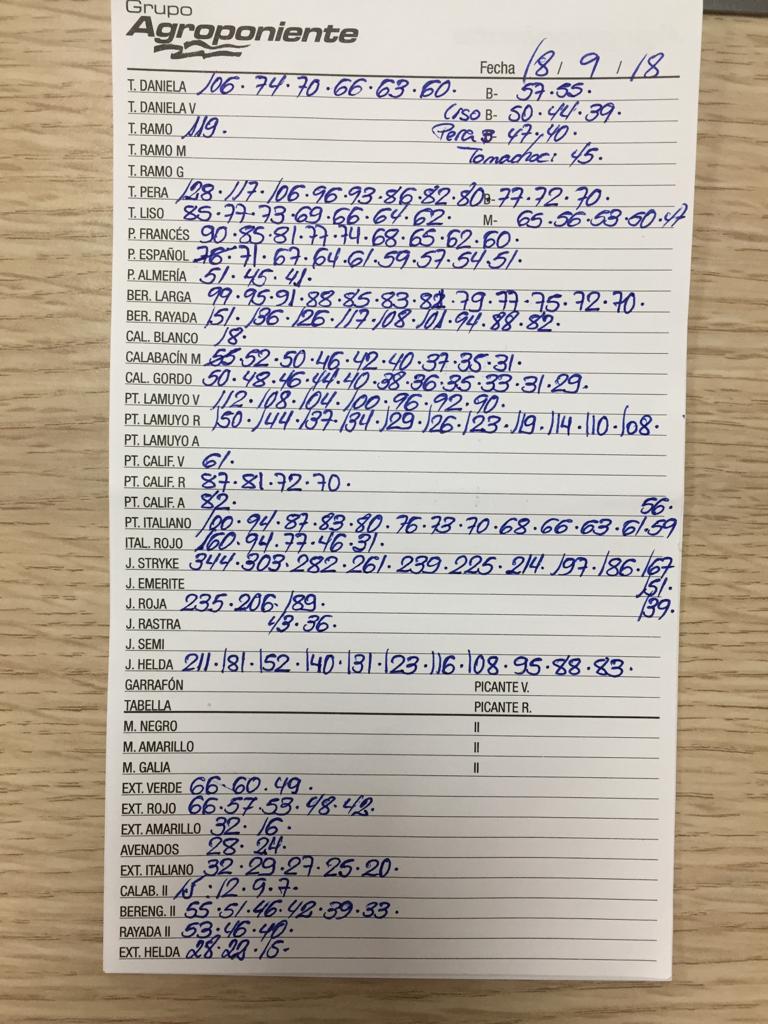 Grupo
Agroponiente
Fecha 18 / 9 / 18
T. DANIELA 106. 74. 70. 66. 63. 60. B- 57. 55.
T. DANIELA V Liso B- 50. 44. 39.
T. RAMO 119. Pera B 47. 40.
T. RAMO M Tomachoc: 45.
T. RAMO G
T. PERA 128. 117. 106. 96. 93. 86. 82. 80. B- 77. 72. 70.
T. LISO 85. 77. 73. 69. 66. 64. 62. M- 65. 56. 53. 50. 47
P. FRANCÉS 90. 85. 81. 77. 74. 68. 65. 62. 60.
P. ESPAÑOL 78. 71. 67. 64. 61. 59. 57. 54. 51.
P. ALMERÍA 51. 45. 41.
BER. LARGA 99. 95. 91. 88. 85. 83. 82. 79. 77. 75. 72. 70.
BER. RAYADA 151. 136. 126. 117. 108. 101. 94. 88. 82.
CAL. BLANCO 18.
CALABACÍN M 55. 52. 50. 46. 42. 40. 37. 35. 31.
CAL. GORDO 50. 48. 46. 44. 40. 38. 36. 35. 33. 31. 29.
PT. LAMUYO V 112. 108. 104. 100. 96. 92. 90.
PT. LAMUYO R 150. 144. 137. 134. 129. 126. 123. 119. 114. 110. 108.
PT. LAMUYO A
PT. CALIF. V 61.
PT. CALIF. R 87. 81. 72. 70.
PT. CALIF. A 82. 56.
PT. ITALIANO 100. 94. 87. 83. 80. 76. 73. 70. 68. 66. 63. 61. 59
ITAL. ROJO 160. 94. 77. 46. 31.
J. STRYKE 344. 303. 282. 261. 239. 225. 214. 197. 186. 167
J. EMERITE 151.
J. ROJA 235. 206. 189. 139.
J. RASTRA 43. 36.
J. SEMI
J. HELDA 211. 181. 152. 140. 131. 123. 116. 108. 95. 88. 83.
GARRAFÓN PICANTE V.
TABELLA PICANTE R.
M. NEGRO II
M. AMARILLO II
M. GALIA II
EXT. VERDE 66. 60. 49.
EXT. ROJO 66. 57. 53. 48. 42.
EXT. AMARILLO 32. 16.
AVENADOS 28. 24.
EXT. ITALIANO 32. 29. 27. 25. 20.
CALAB. II 15. 12. 9. 7.
BERENG. II 55. 51. 46. 42. 39. 33.
RAYADA II 53. 46. 40.
EXT. HELDA 28. 23. 15.